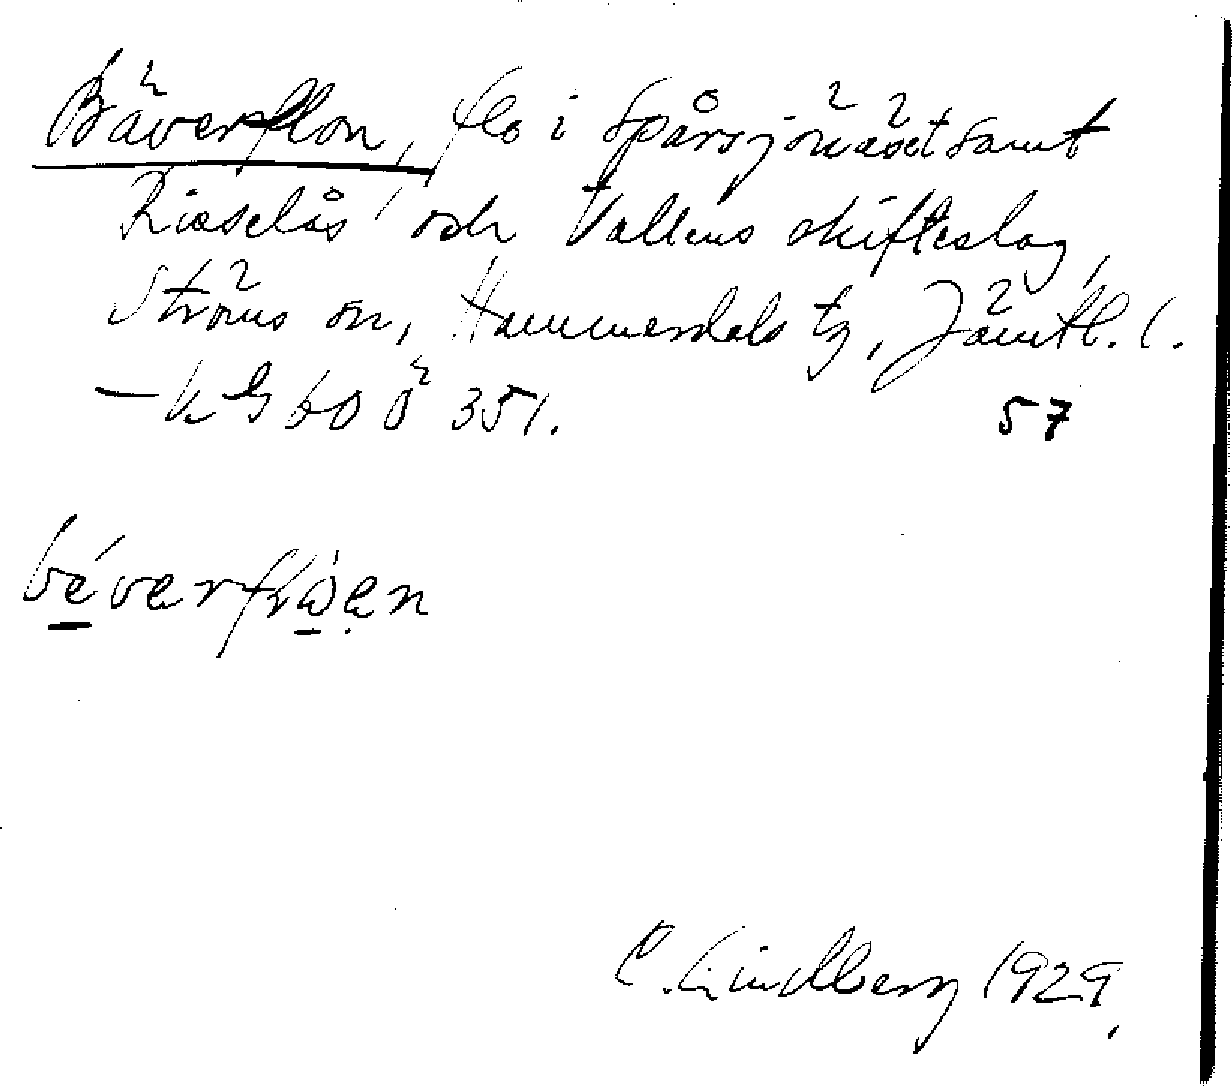 Bäverflon, flo i Spårsjönäset samt
Risselås och Vallens skifteslag,
Ströms sn, Hammerdals tg, Jämtl. l.
– kG 60 ö 351. 57
béverflȯen
C. Lindberg 1929.